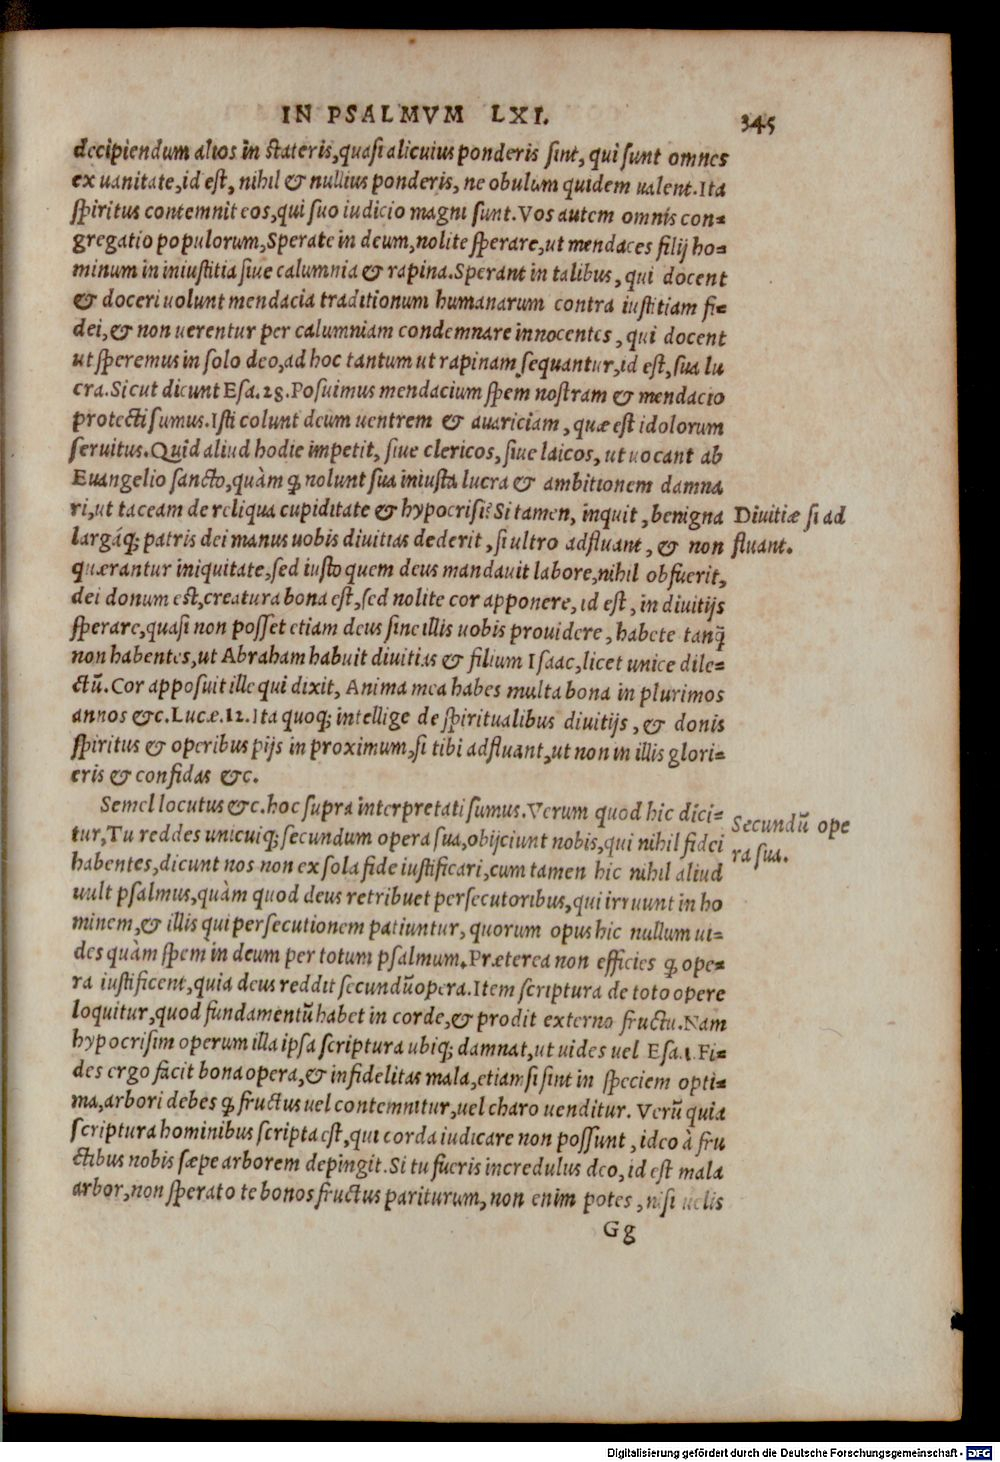 IN PSALMVM LXI. 345
decipiendum alios in stateris, quasi alicuius ponderis sint, qui sunt omnes
ex uanitate, id est, nihil & nullius ponderis, ne obulum quidem ualent. Ita
spiritus contemnit eos, qui suo iudicio magni sunt. Vos autem omnis con=
gregatio populorum, Sperate in deum, nolite sperare, ut mendaces filij ho=
minum in iniustitia siue calumnia & rapina. Sperant in talibus, qui docent
& doceri uolunt mendacia traditionum humanarum contra iustitiam fi=
dei, & non uerentur per calumniam condemnare innocentes, qui docent
ut speremus in solo deo, ad hoc tantum ut rapinam sequantur, id est, sua lu
cra. Sicut dicunt Esa. 28. Posuimus mendacium spem nostram & mendacio
protecti sumus. Isti colunt deum uentrem & auariciam, quæ est idolorum
seruitus. Quid aliud hodie impetit, siue clericos, siue laicos, ut uocant ab
Euangelio sancto, quàm ꝙ nolunt sua iniusta lucra & ambitionem damna
ri, ut taceam de reliqua cupiditate & hypocrisi? Si tamen, inquit, benigna
Diuitiæ si ad
largáq; patris dei manus uobis diuitias dederit, si ultro adfluant, & non
fluant.
quærantur iniquitate, sed iusto quem deus mandauit labore, nihil obfuerit,
dei donum est, creatura bona est, sed nolite cor apponere, id est, in diuitijs
sperare, quasi non posset etiam deus sine illis uobis prouidere, habete tanq̃
non habentes, ut Abraham habuit diuitias & filium Isaac, licet unice dile=
ctũ. Cor apposuit ille qui dixit, Anima mea habes multa bona in plurimos
annos &c. Lucæ. 12. Ita quoq; intellige de spiritualibus diuitijs, & donis
spiritus & operibus pijs in proximum, si tibi adfluant, ut non in illis glori=
eris & confidas &c.
Semel locutus &c. hoc supra interpretati sumus. Verum quod hic dici=
Secundũ ope
tur, Tu reddes unicuiq; secundum opera sua, obijciunt nobis, qui nihil fidei
ra sua.
habentes, dicunt nos non ex sola fide iustificari, cum tamen hic nihil aliud
uult psalmus, quàm quod deus retribuet persecutoribus, qui irruunt in ho
minem, & illis qui persecutionem patiuntur, quorum opus hic nullum ui=
des quàm spem in deum per totum psalmum. Præterea non efficies ꝙ ope=
ra iustificent, quia deus reddit secundũ opera. Item scriptura de toto opere
loquitur, quod fundamentũ habet in corde, & prodit externo fructu. Nam
hypocrisim operum illa ipsa scriptura ubiq; damnat, ut uides uel Esa. 1. Fi=
des ergo facit bona opera, & infidelitas mala, etiam si sint in speciem opti=
ma, arbori debes ꝙ fructus uel contemnitur, uel charo uenditur. Verũ quia
scriptura hominibus scripta est, qui corda iudicare non possunt, ideo à fru
ctibus nobis sæpe arborem depingit. Si tu fueris incredulus deo, id est mala
arbor, non sperato te bonos fructus pariturum, non enim potes, nisi uelis
Gg
Digitalisierung gefördert durch die Deutsche Forschungsgemeinschaft - DFG